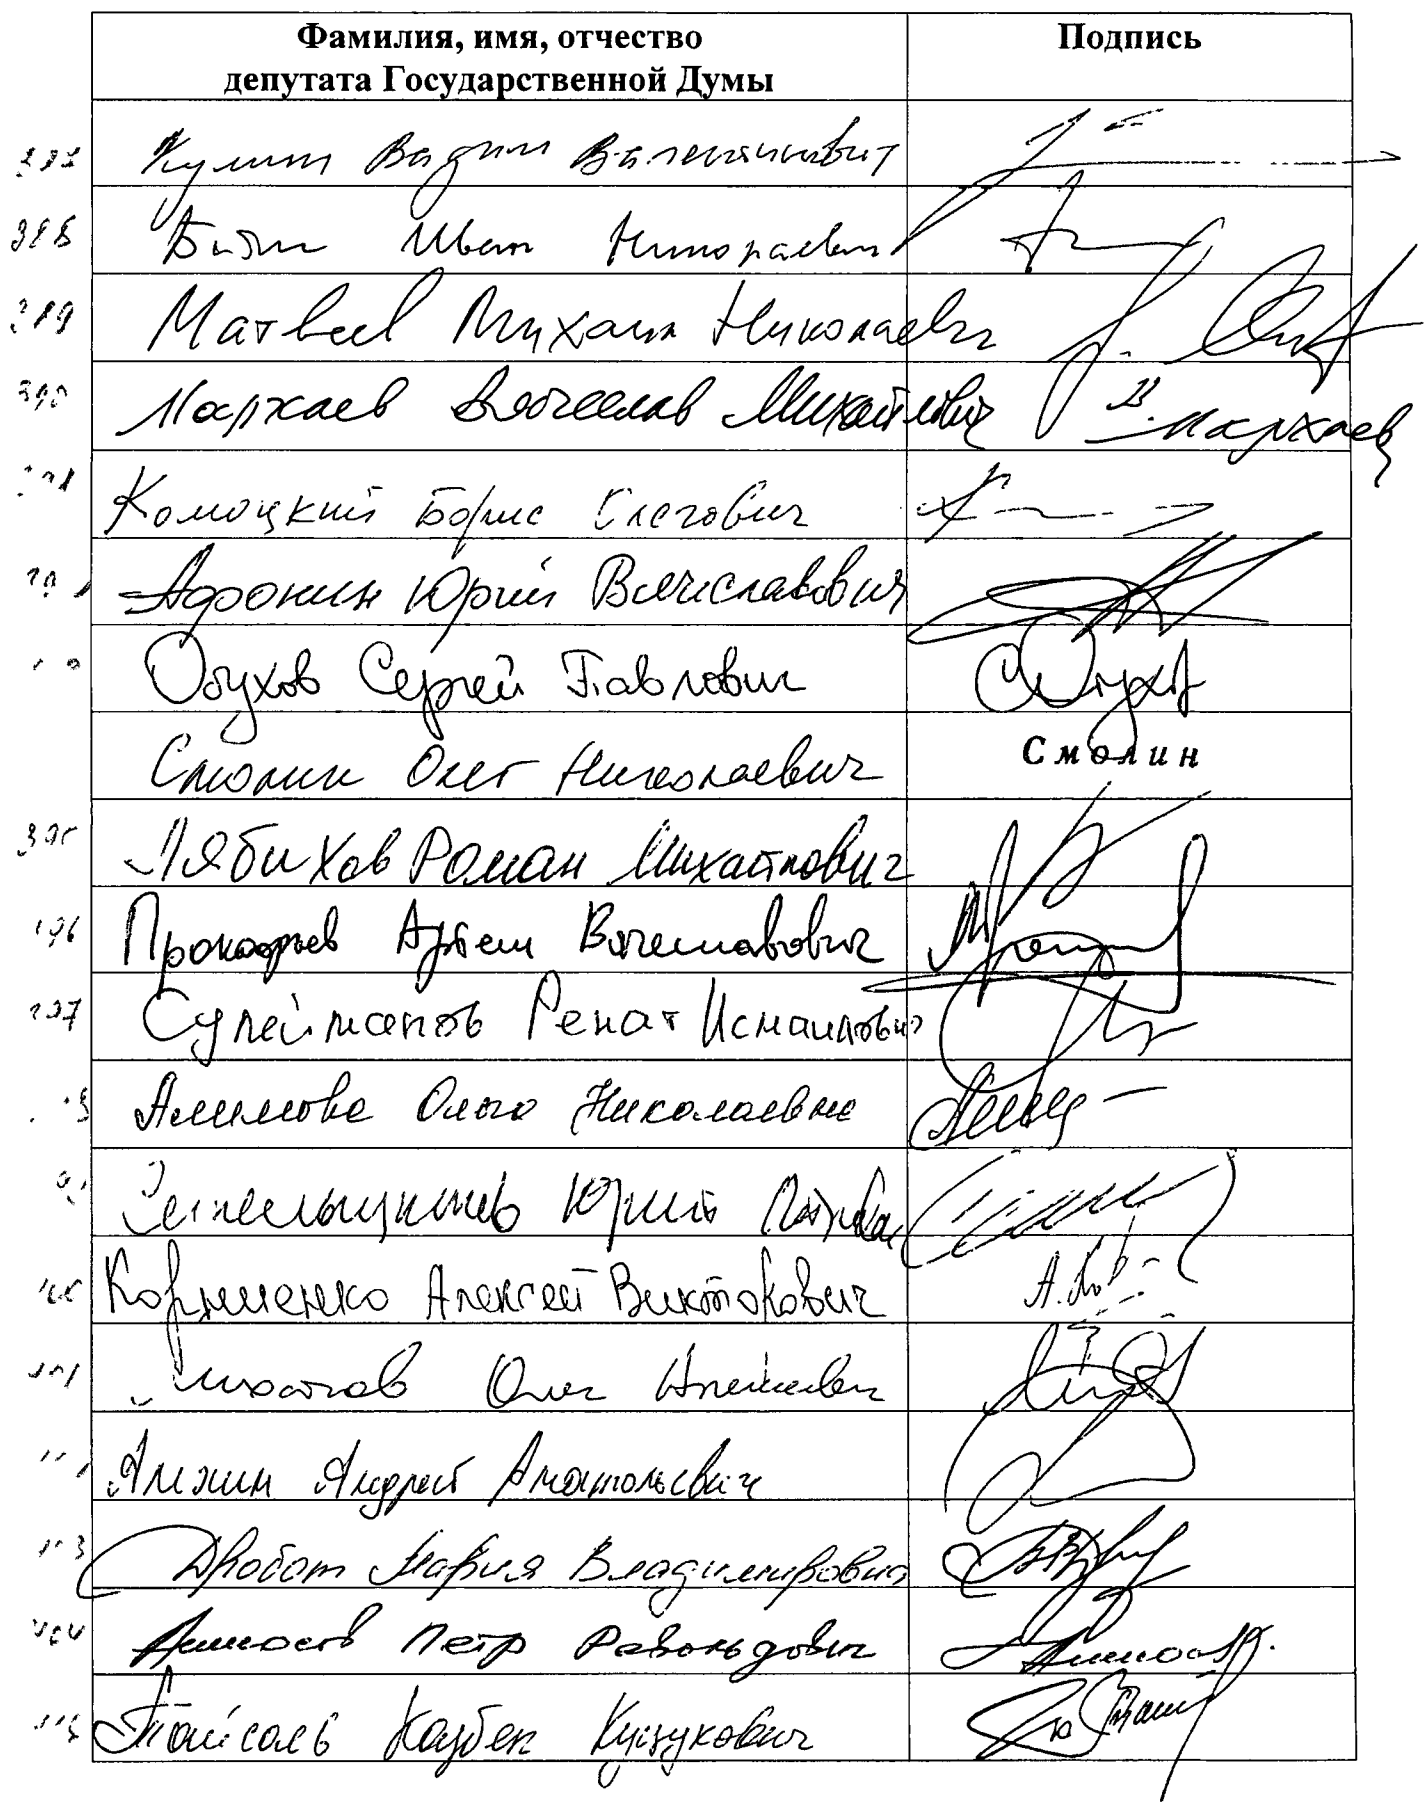 Фамилия, имя, отчество
депутата Государственной Думы
Подпись
Кумин Вадим Валентинович
388 Бабич Иван Николаевич
389 Матвеев Михаил Николаевич
390 Мархаев Вячеслав Михайлович В. Мархаев
Комоцкий Борис Олегович
Афонин Юрий Вячеславович
Обухов Сергей Павлович СОбухов
Смолин Олег Николаевич Смолин
395 Лябихов Роман Михайлович
396 Прокофьев Артем Вячеславович
397 Сулейманов Ренат Исмаилович
Алимова Ольга Николаевна
Синельщиков Юрий Петрович
Корниенко Алексей Викторович
401 Михайлов Олег Алексеевич
Алехин Андрей Анатольевич
403 Дробот Мария Владимировна
404 Аммосов Петр Револьдович Аммосов
Тайсаев Казбек Куцукович